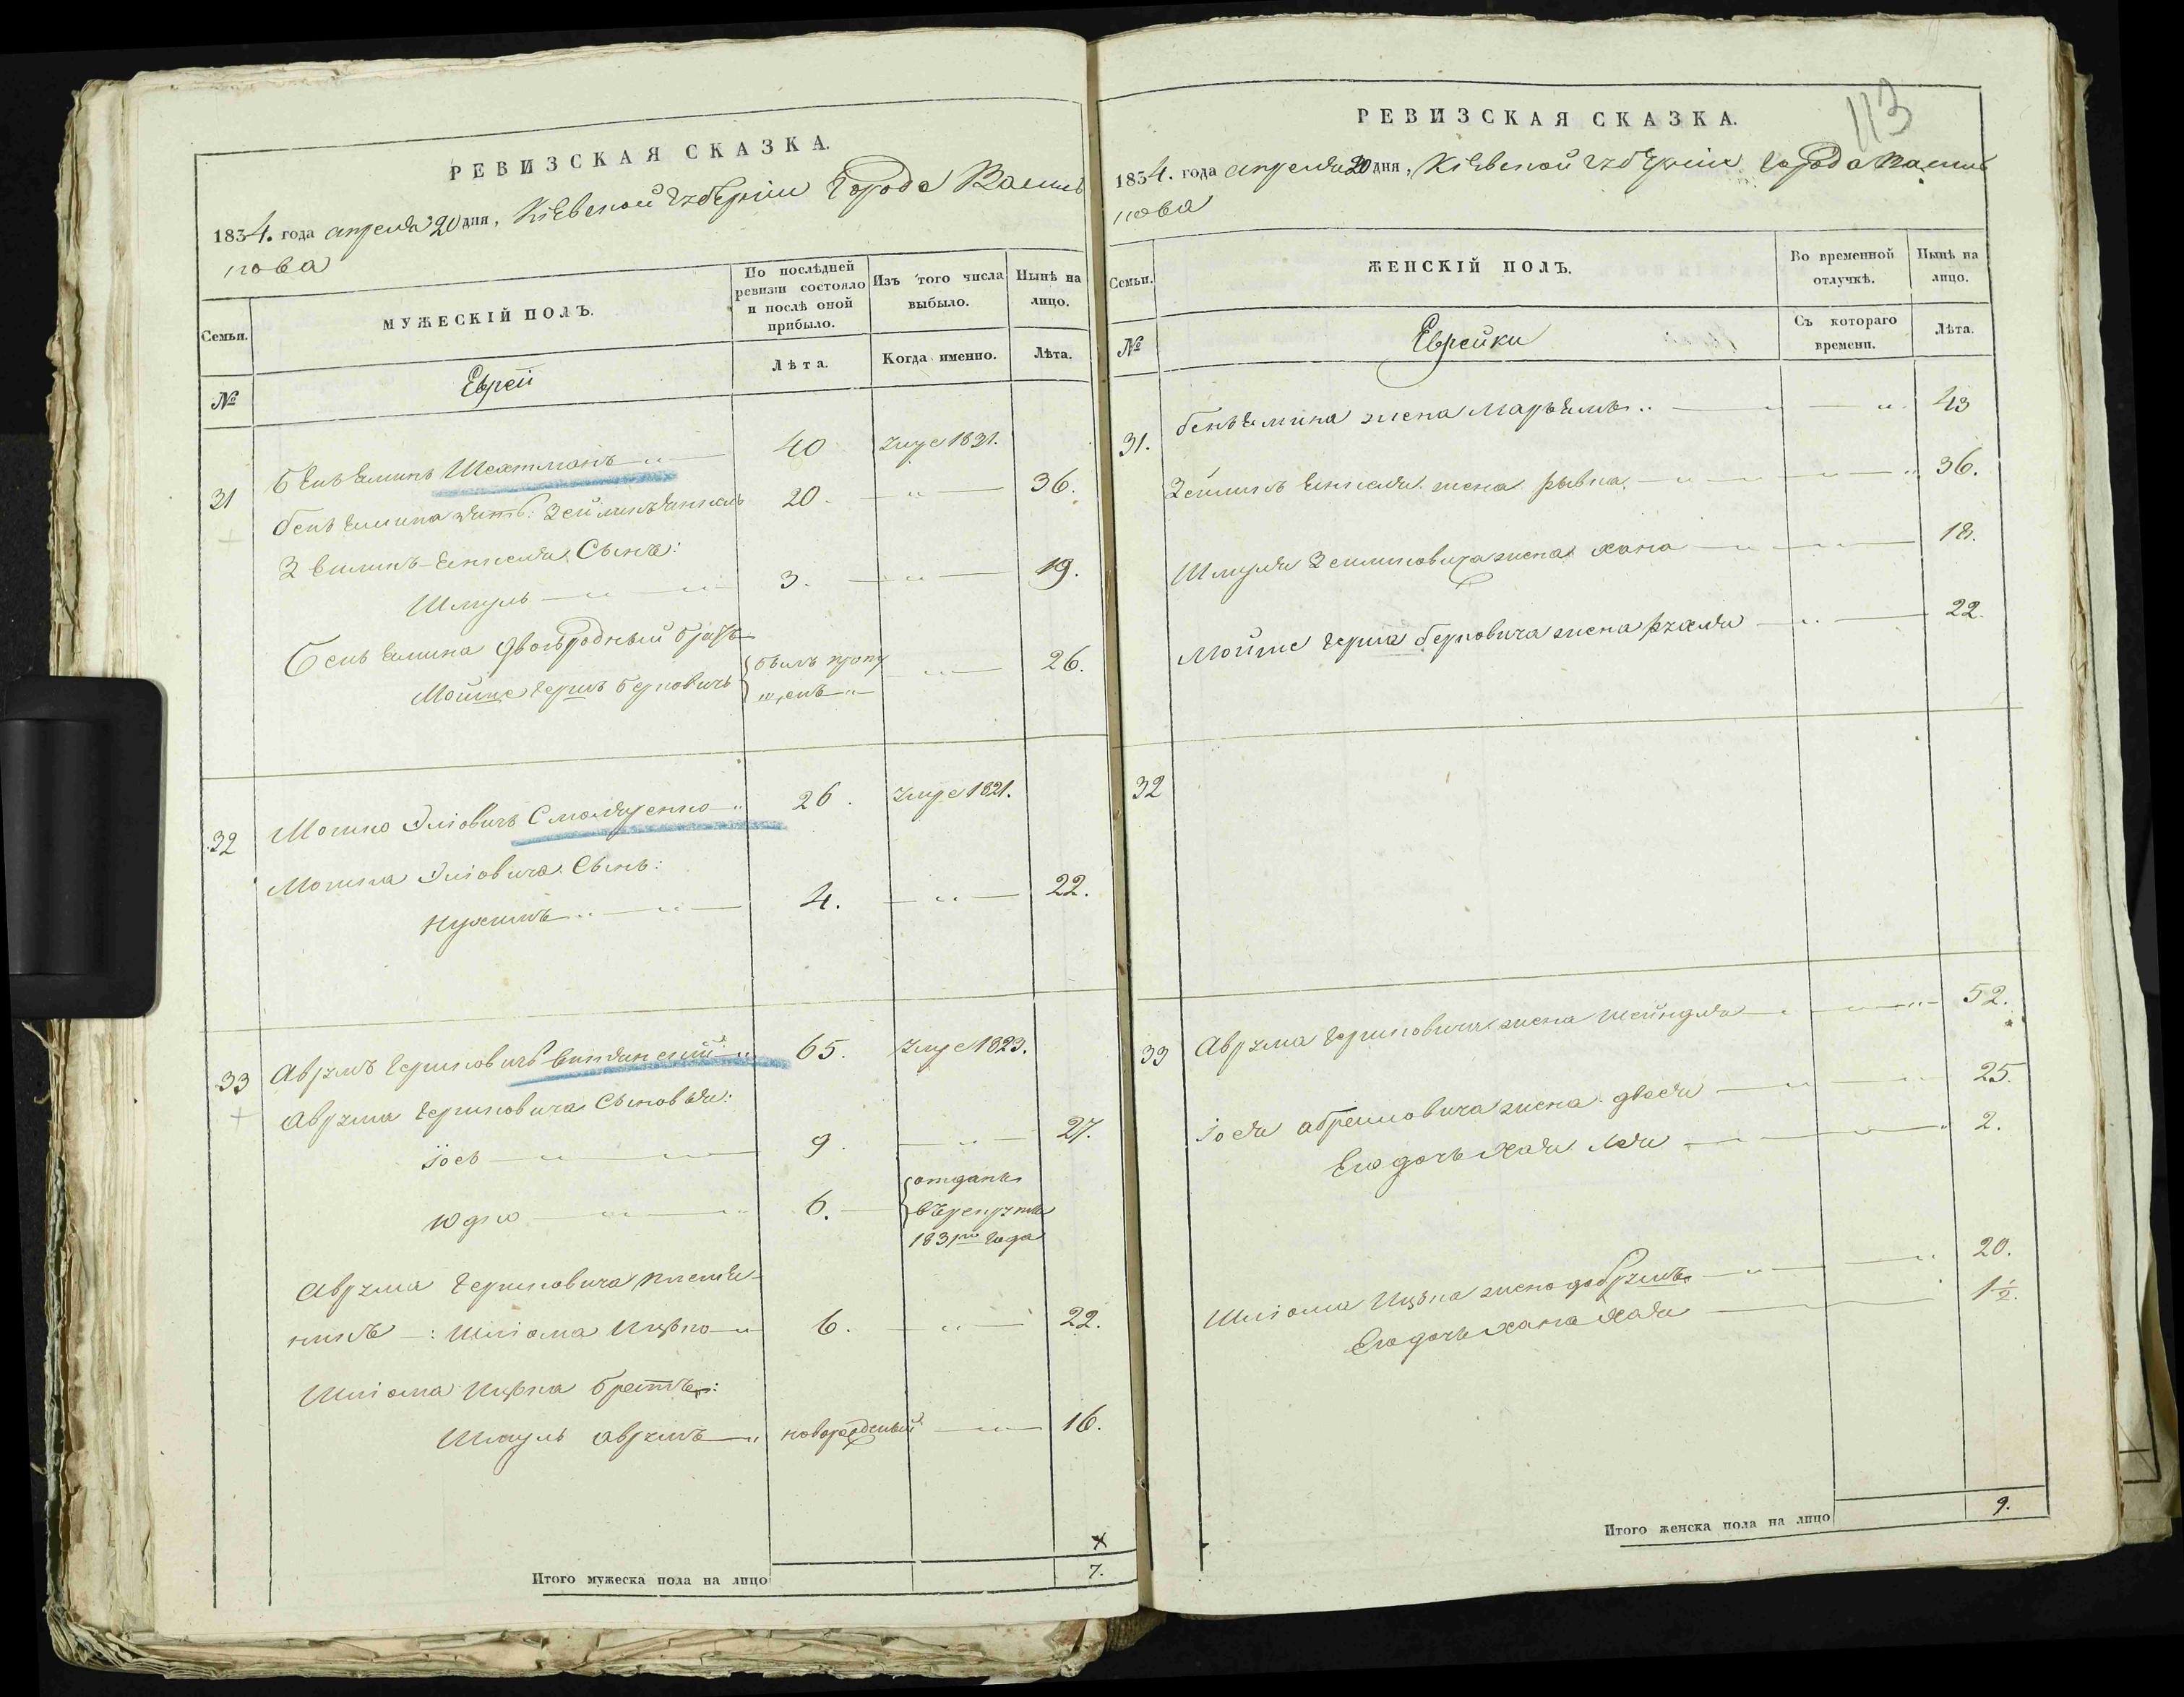 РЕВИЗСКАЯ СКАЗКА.
1834. года апреля 20 дня, Кіевской губерніи города Василь
кова
Семьи.
МУЖЕСКІЙ ПОЛЪ.
По послѣдней ревизіи состояло и послѣ оной прибыло.
Изъ того числа выбыло.
Нынѣ на лицо.
№
Еврей
Лѣта.
Когда именно.
Лѣта.
31 Беньяминъ Шехтманъ 40 умре 1831.
Беньямина зять: Зейликъ Янкель 20. 36.
Зейликъ Янкеля Сынъ:
Шмуль 3. 19.
Беньямина двоюродный братъ
Мойше Гершъ Берковичъ былъ пропущенъ 26.
32 Мошко Эліовичъ Смоляренко 26. умре 1821.
Мошка Эліовича Сынъ:
Нухимъ 4. 22.
33 Аврумъ Гершковичъ 65. умре 1823.
Аврума Гершковича Сыновья:
Іось 9. 27.
Юдко 6. отданъ въ рекруты 1831го года
Аврума Гершковича племян-
никъ: Шліома Ицько 6. 22.
Шліома Ицька братъ:
Шмуль Аврумъ новорожденый 16.
Итого мужеска пола на лицо 7.
113
РЕВИЗСКАЯ СКАЗКА.
1834. года апреля 20 дня, Кіевской губерніи города Василь
кова
Семьи.
ЖЕНСКІЙ ПОЛЪ.
Во временной отлучкѣ.
Нынѣ на лицо.
№
Еврейки
Съ котораго времени.
Лѣта.
31. Беньямина жена Марьямъ 43
Зейликъ Янкеля жена Рывка 36.
Шмуля Зейликовича жена Хана 18.
Мойше Герша Берковича жена Рухля 22.
32
33 Аврума Гершковича жена Шейндля 52.
Іося Абрамовича жена Двося 25.
Его дочь Хая Лея 2.
Шліома Ицька жена Добрумъ 20.
Его дочь Хана Хая 1½.
Итого женска пола на лицо 9.